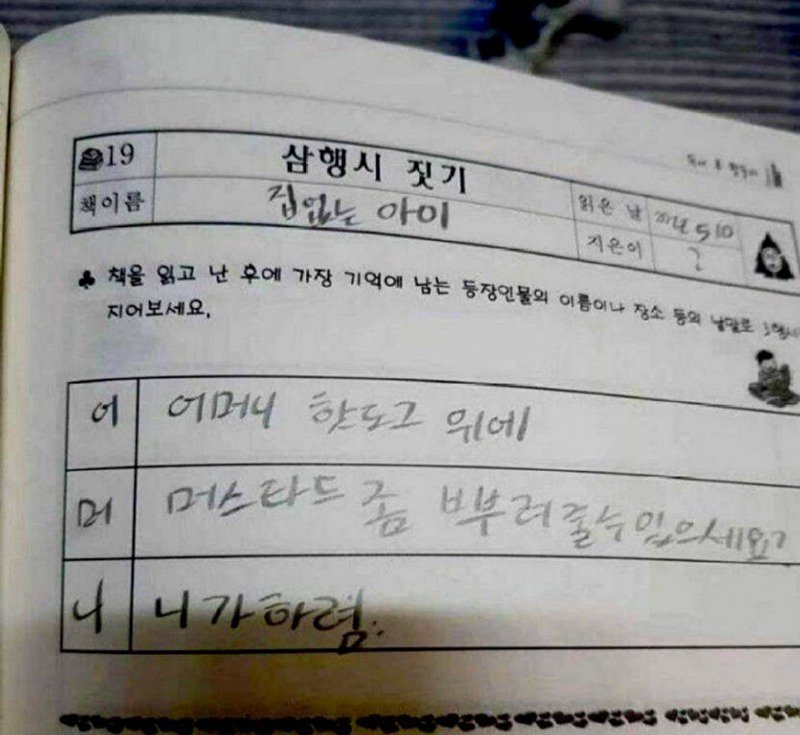 19 삼행시 짓기
책이름 집없는 아이 읽은 날 5 10
지은이 ?
♣ 책을 읽고 난 후에 가장 기억에 남는 등장인물의 이름이나 장소 등의 낱말로 3행시
지어보세요.
어 어머니 핫도그 위에
머 머스타드 좀 뿌부려줄수있으세요?
니 니가하렴.